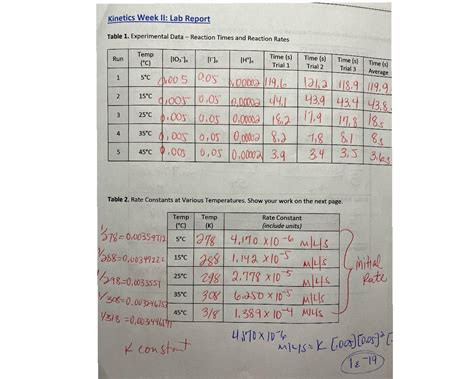 Kinetics Week II: Lab Report
Table 1. Experimental Data – Reaction Times and Reaction Rates
Run Temp (°C) [IO₃⁻]ₒ [I⁻]ₒ [H⁺]ₒ Time (s) Trial 1 Time (s) Trial 2 Time (s) Trial 3 Time (s) Average
1 5°C 0.005 0.05 0.00002 119.6 121.2 118.9 119.9
2 15°C 0.005 0.05 0.00002 44.1 43.9 43.4 43.8
3 25°C 0.005 0.05 0.00002 18.2 17.9 17.8 18s
4 35°C 0.005 0.05 0.00002 8.2 7.8 8.1 8s
5 45°C 0.005 0.05 0.00002 3.9 3.4 3.5 3.6s
Table 2. Rate Constants at Various Temperatures. Show your work on the next page.
Temp (°C) Temp (K) Rate Constant (include units)
1/278=0.00359712 5°C 278 4.170 x10⁻⁶ M/L/S
1/288=0.00347222 15°C 288 1.142 x10⁻⁵ M/L/S
1/298=0.0033557 25°C 298 2.778 x10⁻⁵ M/L/S
1/308=0.00324675 35°C 308 6.250 x10⁻⁵ M/L/S
45°C 318 1.389 x10⁻⁴ M/L/S
initial Rate
K constant
M/L/S = K [.005][0.05]² [